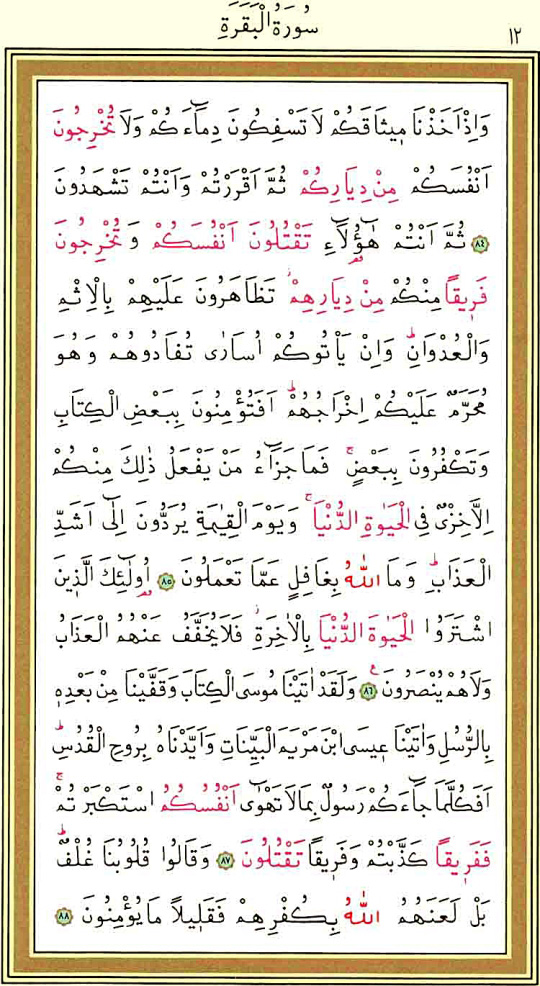 سُورَةُ الْبَقَرَةِ
١٢
وَاِذْ اَخَذْنَا م۪يثَاقَكُمْ لَا تَسْفِكُونَ دِمَٓاءَكُمْ وَلَا تُخْرِجُونَ
اَنْفُسَكُمْ مِنْ دِيَارِكُمْ ثُمَّ اَقْرَرْتُمْ وَاَنْتُمْ تَشْهَدُونَ
﴿٨٤﴾ ثُمَّ اَنْتُمْ هٰٓؤُ۬لَٓاءِ تَقْتُلُونَ اَنْفُسَكُمْ وَتُخْرِجُونَ
فَر۪يقاً مِنْكُمْ مِنْ دِيَارِهِمْۘ تَظَاهَرُونَ عَلَيْهِمْ بِالْاِثْمِ
وَالْعُدْوَانِۜ وَاِنْ يَأْتُوكُمْ اُسَارٰى تُفَادُوهُمْ وَهُوَ
مُحَرَّمٌ عَلَيْكُمْ اِخْرَاجُهُمْۜ اَفَتُؤْمِنُونَ بِبَعْضِ الْكِتَابِ
وَتَكْفُرُونَ بِبَعْضٍۚ فَمَا جَزَٓاءُ مَنْ يَفْعَلُ ذٰلِكَ مِنْكُمْ
اِلَّا خِزْيٌ فِي الْحَيٰوةِ الدُّنْيَاۚ وَيَوْمَ الْقِيٰمَةِ يُرَدُّونَ اِلٰٓى اَشَدِّ
الْعَذَابِۜ وَمَا اللّٰهُ بِغَافِلٍ عَمَّا تَعْمَلُونَ ﴿٨٥﴾ اُو۬لٰٓئِكَ الَّذ۪ينَ
اشْتَرَوُا الْحَيٰوةَ الدُّنْيَا بِالْاٰخِرَةِۘ فَلَا يُخَفَّفُ عَنْهُمُ الْعَذَابُ
وَلَا هُمْ يُنْصَرُونَ۟ ﴿٨٦﴾ وَلَقَدْ اٰتَيْنَا مُوسَى الْكِتَابَ وَقَفَّيْنَا مِنْ بَعْدِه۪
بِالرُّسُلِ وَاٰتَيْنَا ع۪يسَى ابْنَ مَرْيَمَ الْبَيِّنَاتِ وَاَيَّدْنَاهُ بِرُوحِ الْقُدُسِۜ
اَفَكُلَّمَا جَٓاءَكُمْ رَسُولٌ بِمَا لَا تَهْوٰٓى اَنْفُسُكُمُ اسْتَكْبَرْتُمْۚ
فَفَر۪يقاً كَذَّبْتُمْ وَفَر۪يقاً تَقْتُلُونَ ﴿٨٧﴾ وَقَالُوا قُلُوبُنَا غُلْفٌۜ
بَلْ لَعَنَهُمُ اللّٰهُ بِكُفْرِهِمْ فَقَل۪يلاً مَا يُؤْمِنُونَ ﴿٨٨﴾